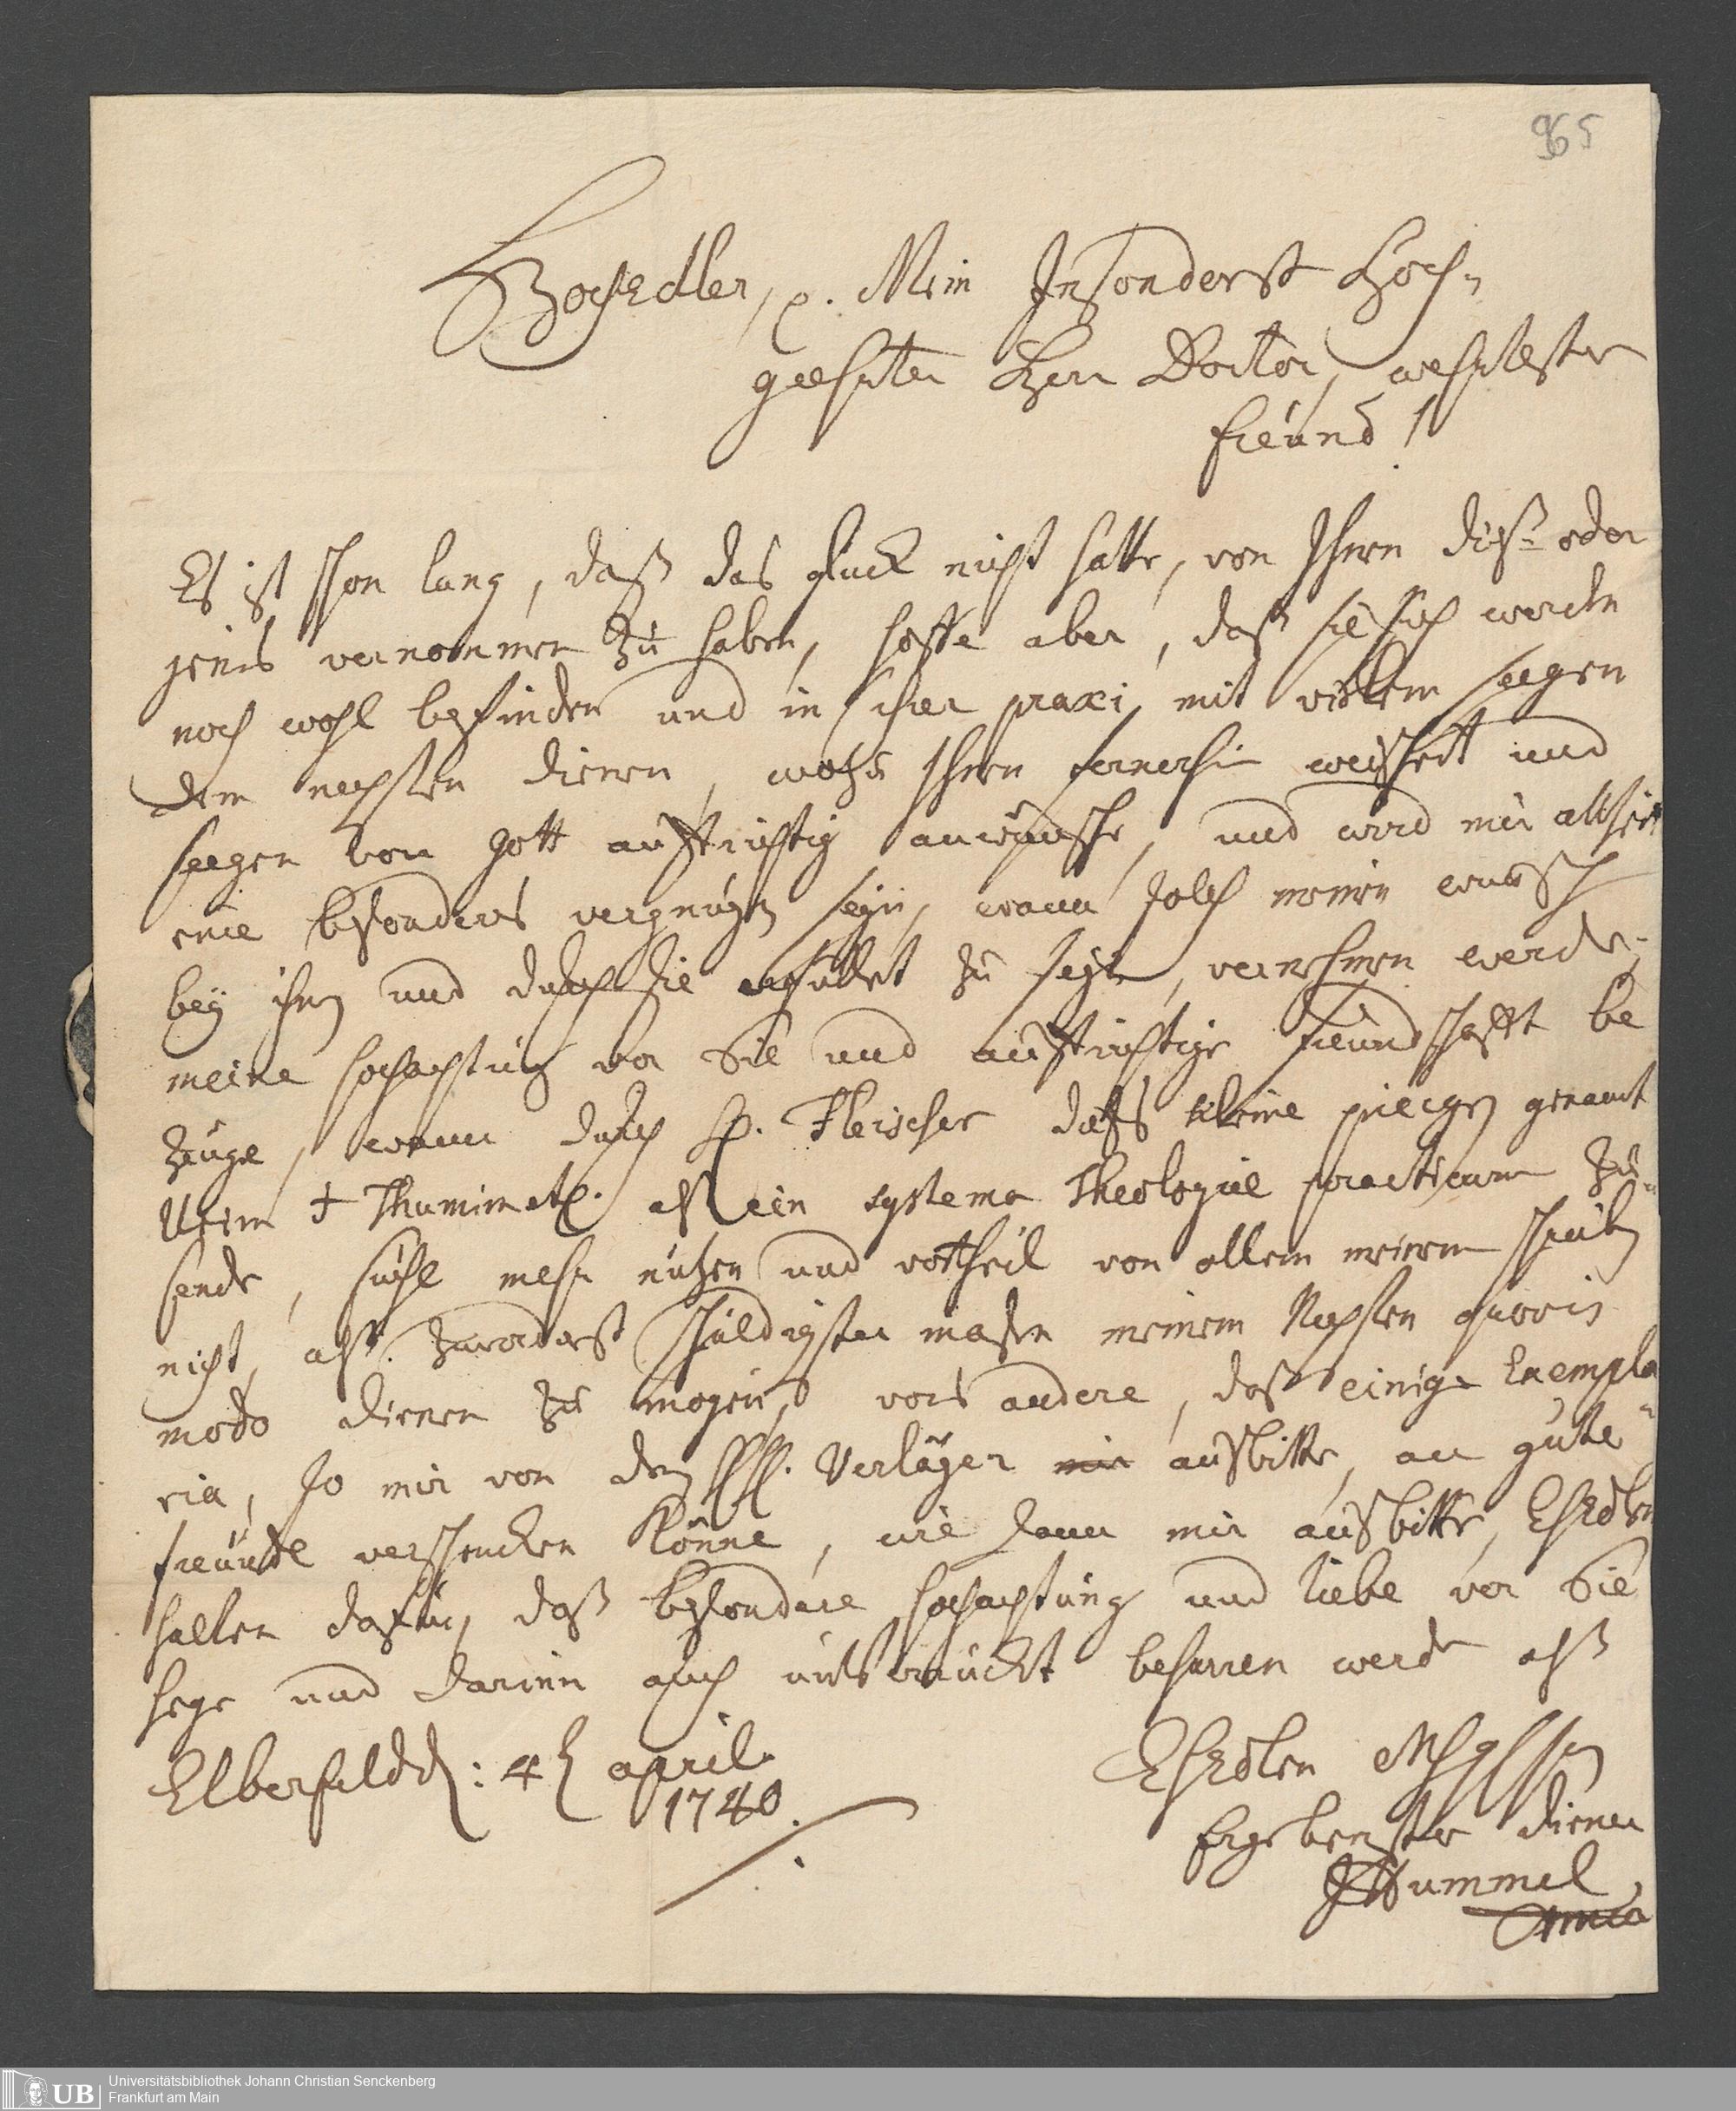 965
HochEdler, p. Mein Insonderst Hoch-
geehrter Herr Doctor, wehrtester
freund!
Es ist schon lang, daß das glück nicht hatte, von Ihnen diß- oder
jenes vernommen zu haben, hoffe aber, daß sie sich werden
noch wohl befinden und in ihrer praxi mit vielem seegen
dem nechsten dienen, wozu Ihnen fernerhin weißheit und
seegen von Gott auffrichtig anwünsche, und wird mir allzeit
eine besonders vergnügen seyn, wann solch meinen wunsch
bey ihnen und durch sie erfüllet zu seyn, vernehmen werde;
meine hochachtung vor Sie und auffrichtige freundschafft be
zeuge, wann durch H. Fleischer dießes kleine piecgen genant
Urim & Thumim etc. alß ein systema Theologiae practicum zu-
sende, suche mehr nutzen und vortheil von allem meinem schreiben
nicht, alß zuvorderst schuldigster maßen meinem Nechsten quovis
modo dienen zu mögen, vors andere, daß einige Exempla
ria, so mir von dem HH. Verläger mir ausbitte, an gute
freunde verschencken könne, wie dann mir ausbitte, EhEdlen
halten dafür, daß besondere hochachtung und liebe vor Sie
hege und darinn auch unverruckt beharren werde alß
Elberfeld d: 4 april
1740.
EhEdlen
Ergebenster diener
Hummel